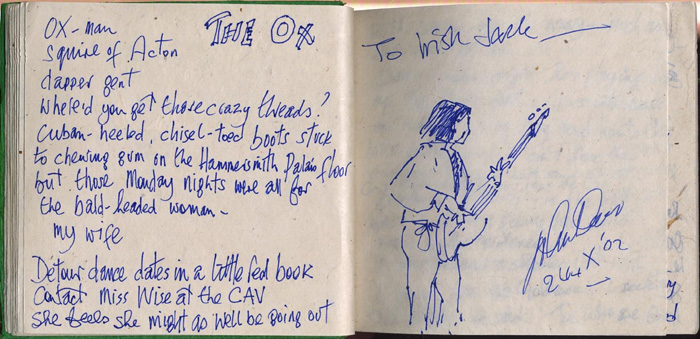 THE OX
OX-man
squire of Acton
dapper gent
where'd you get those crazy threads?
Cuban-heeled, chisel-toed boots stuck
to chewing gum on the Hammersmith Palais floor
but those Monday nights were all for
the bald-headed woman -
my wife
Detour dance dates in a little fed book
Contact Miss Wise at the CAV
she feels she might as well be going out
To Irish Jack
X '02